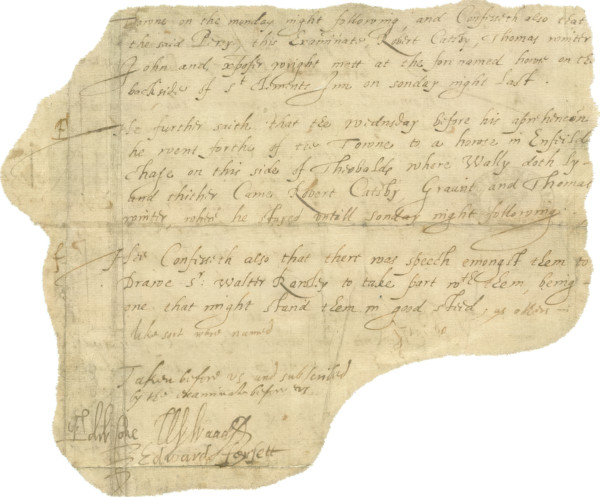 Towne on the monday night following and Confesseth also that
the said Percy, this Examinate Robert Catesby, Thomas winter
John and xpofer wright mett at the forenamed howse on the
backside of St Clements Inn on sonday night last.
He further saith that the wednesday before his apprhencon
he went forth of the Towne to a howse in Enfeild
Chase on this side of Theobalds where Wally doth ly
and thither Came Robert Catsby Graunt and Thomas
winter, where he stayed untill sonday night following
Hee Confesseth also that there was speech emongst them to
Drawe Sr Walter Rawley to take part wth them, being
one that might stand them in good steed, as others in
like sort were named
Taken before us and subscribed
by the examinate before us.
Waad
Edward forsett